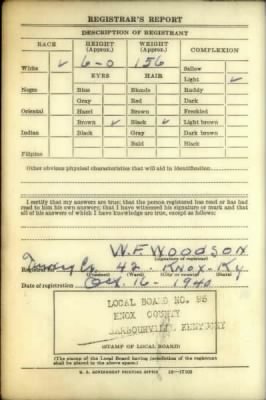 REGISTRAR'S REPORT
DESCRIPTION OF REGISTRANT
RACE HEIGHT (Approx.) WEIGHT (Approx.) COMPLEXION
White ✓ 6-0 156 Sallow
EYES HAIR Light ✓
Negro Blue Blonde Ruddy
Gray Red Dark
Oriental Hazel Brown Freckled
Brown ✓ Black ✓ Light brown
Indian Black Gray Dark brown
Bald Black
Filipino
Other obvious physical characteristics that will aid in identification
I certify that my answers are true; that the person registered has read or has had
read to him his own answers; that I have witnessed his signature or mark and that
all of his answers of which I have knowledge are true, except as follows:
W. F. WOODSON
(Signature of registrar)
Registrar for 42 - Knox - Ky
(Precinct) (Ward) (City or county) (State)
Date of registration Oct. 16 - 1940
LOCAL BOARD NO. 95
KNOX COUNTY
BARBOURVILLE, KENTUCKY
(STAMP OF LOCAL BOARD)
(The stamp of the Local Board having jurisdiction of the registrant
shall be placed in the above space.)
U. S. GOVERNMENT PRINTING OFFICE 16-17105